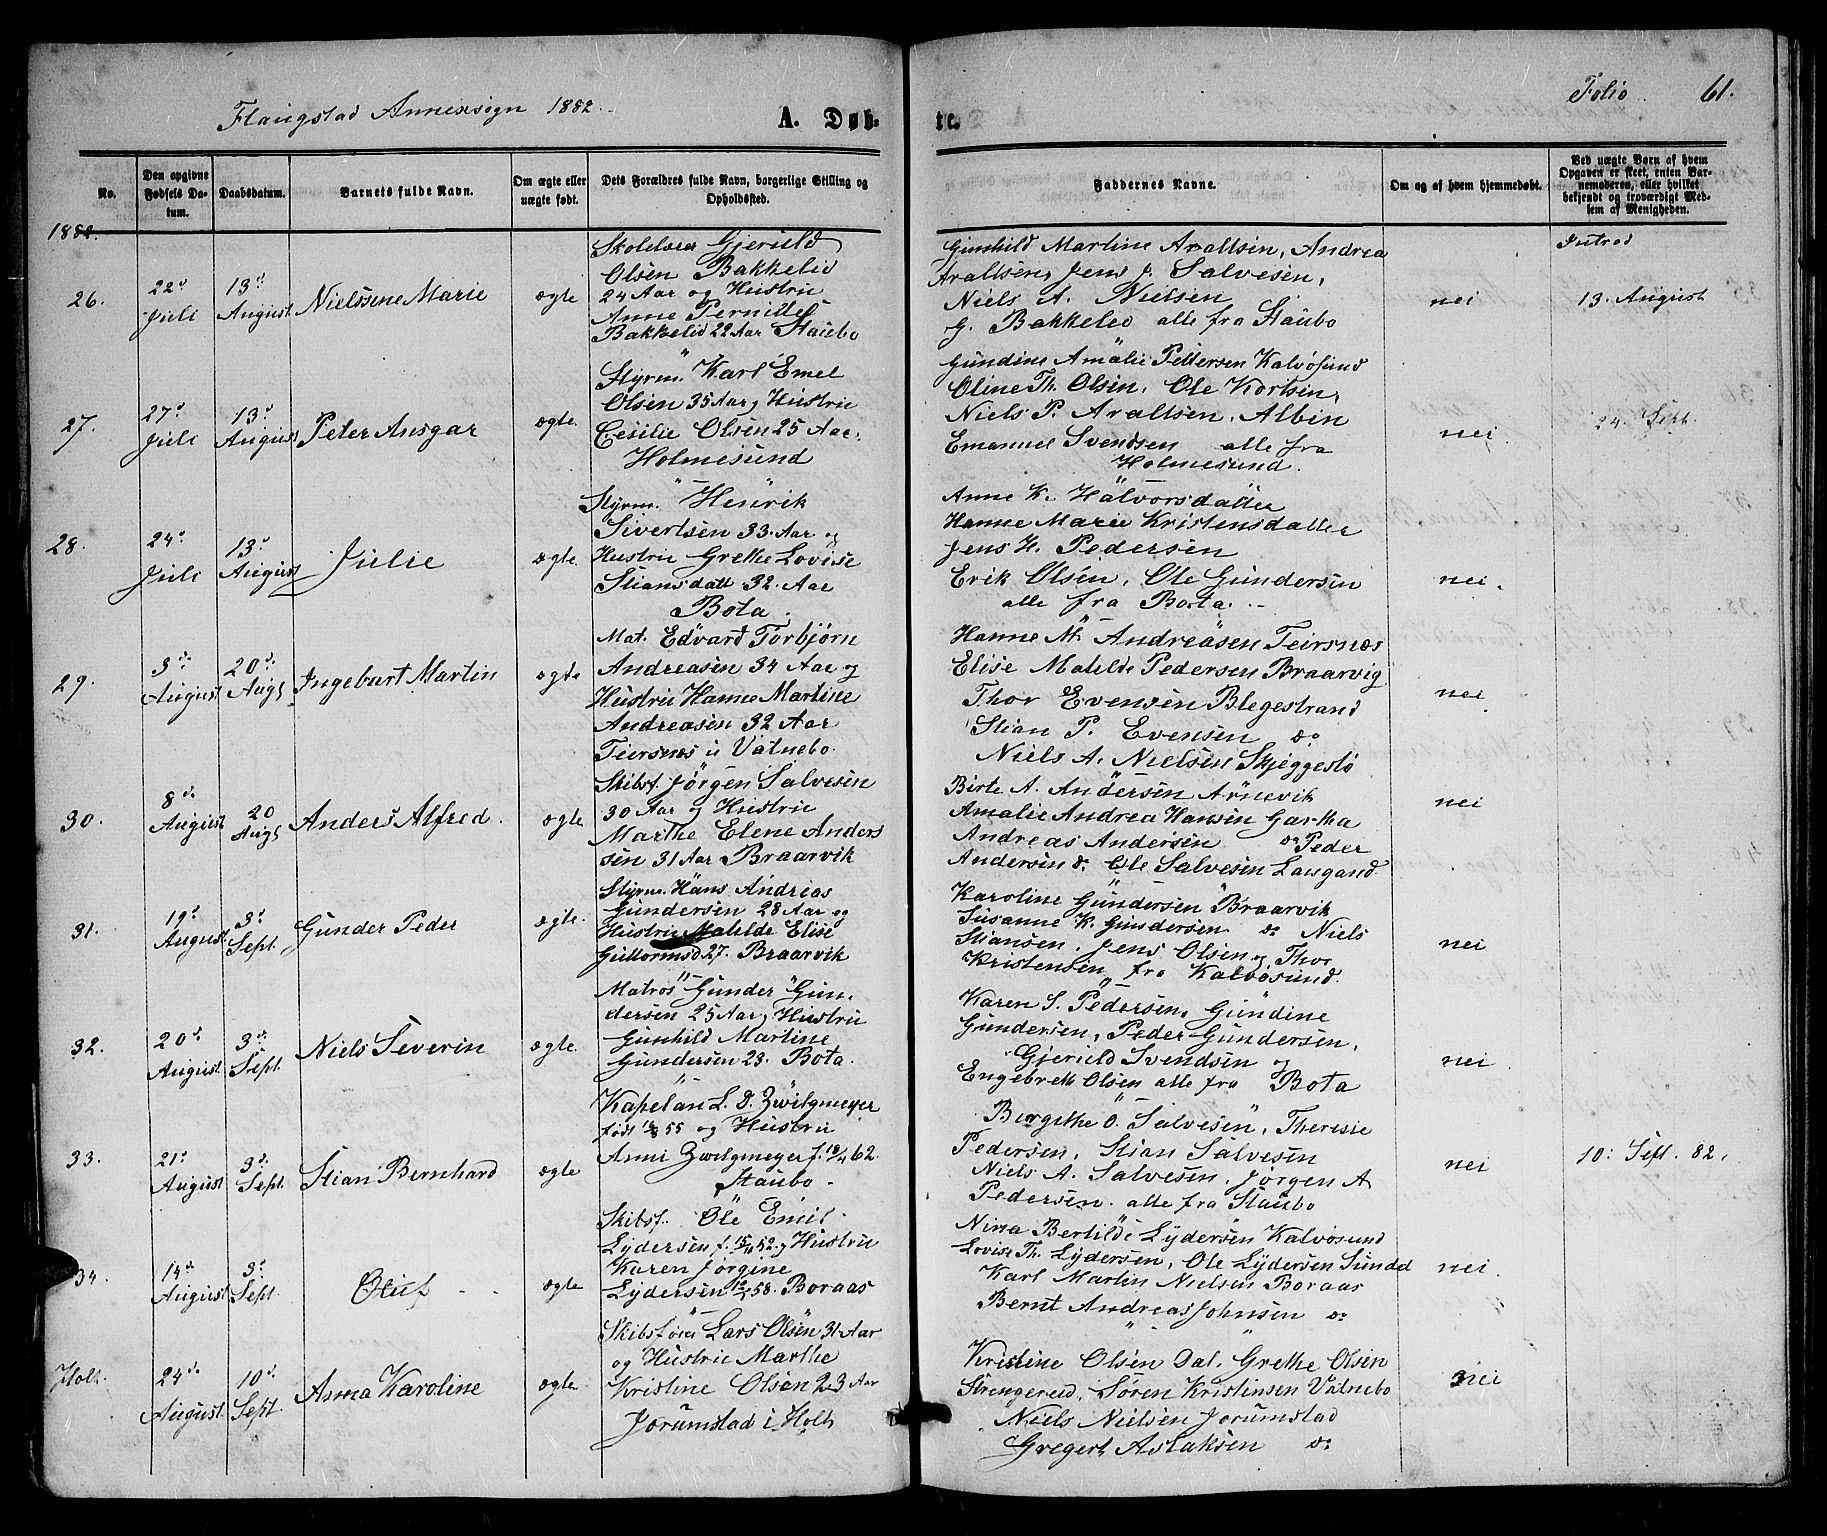 Flangstad Annexsogn 1882.
A. Døb-
te.
Folio 61.
No.
Den opgivne Fødsels Da-
tum.
Daabsdatum.
Barnets fulde Navn.
Om ægte eller
uægte født.
Dets Forældres fulde Navn, borgerlige Stilling og
Opholdsted.
Faddernes Navne.
Om og af hvem hjemmedøbt.
Ved uægte Børn af hvem
Opgaven er skeet, enten Bar-
nemoderen, eller hvilket
bekjendt og troværdigt Med-
lem af Menigheden.
1882.
26.
22d Juli
13d August
Nielsine Marie
ægte
Skolelærer Gjeruld
Olsen Bakkelid
24 Aar og Hustru
Anne Pernille
Bakkelid 22 Aar Staubo
Gunhild Martine Araltsen, Andrea
Araltsen, Jens J. Salvesen,
Niels A. Nielsen
G. Bakkelid alle fra Staubo
nei
Introd
13. August
27.
27d Juli
13d August
Peter Ansgar
ægte
Styrm. Karl Emel
Olsen 35 Aar, Hustru
Cesilie Olsen 25 Aar.
Holmesund
Gundine Amalie Pettersen Kalvøsund
Oline Th. Olsen, Ole Kortsen,
Niels P. Araltsen, Albin
Emanuel Svendsen alle fra
Holmesund.
nei
24. Sept.
28.
24d Juli
13d August
Julie
ægte
Styrm. Henrik
Sivertsen 33 Aar og
Hustru Grethe Lovise
Stiansdatt 32 Aar
Bota.
Anne K. Halvorsdatter
Hanne Marie Kristensdatter
Jens H. Pedersen
Erik Olsen, Ole Gundersen
alle fra Bota.
nei
29.
3d August
20d Augs
Ingebart Martin
ægte
Mat. Edvard Torbjørn
Andreasen 34 Aar og
Hustru Hanne Martine
Andreasen 32 Aar
Teirsnæs u Vatnebo.
Hanne M. Andreasen Teirsnæs
Elise Matilde Pedersen Braarvig
Thor Evensen Blegestrand
Stian P. Evensen do
Niels A. Nielsen Skjeggestø
nei
30.
8d August
20 Augs
Anders Alfred.
ægte
Skibsf. Jørgen Salvesen
30 Aar og Hustru
Marthe Elene Anders
sen 31 Aar Braarvik
Birte A. Andersen Arnevik
Amalie Andrea Hansen Gartha
Andreas Andersen do Peder
Andersen do. Ole Salvesen Langand
nei
31.
19d August
3d Sept.
Gunder Peder
ægte.
Styrm. Hans Andreas
Gundersen 28 Aar og
Hustru Matilde Elise
Guttormsd 27. Braarvik
Karoline Gundersen Braarvik
Susanne K. Gundersen do Niels
Stiansen, Jens Olsen og Thor
Kristensen fra Kalvøsund.
nei
32.
20d August
3d Sept
Niels Severin
ægte.
Matros Gunder Gun-
dersen 25 Aar, Hustru
Gunhild Martine
Gundersen 23. Bota.
Karen S. Pedersen, Gundine
Gundersen, Peder Gundersen,
Gjeruld Svendsen og
Engebreth Olsen alle fra Bota
nei
33.
21d August
3d Sept.
Stian Bernhard
ægte
Kapelan L. D. Zwilgmeyer
født 16/8 55 og Hustru
Anni Zwilgmeyer f. 18/4 62.
Staubo
Birgithe O. Salvesen, Theresie
Pedersen, Stian Salvesen
Niels A. Salvesen, Jørgen A
Pedersen. alle fra Staubo
nei
10: Sept. 82.
34.
14d August
3d Sept.
Oluf
ægte
Skibsf. Ole Emil
Lydersen f. 15/11 52 og Hustru
Karen Jørgine
Lydersen 58. Boraas
Nina Bertilde Lydersen Kalvøsund
Lovise Th. Lydersen, Ole Lydersen Sundd
Karl Martin Nielsen Boraas
Bernt Andreas Johnsen do
nei.
Holt.
24d August
10d Sept.
Anna Karoline
ægte
Skibsfører Lars Olsen 31 Aar
og Hustru Marthe
Kristine Olsen 23 Aar
Jorumstad i Holt
Kristine Olsen Dal, Grethe Olsen
Strengereid, Søren Kristensen Vatnebo
Niels Nielsen Jorumstad
Gregert Aslaksen do
nei